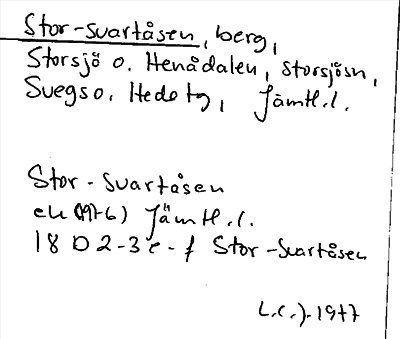 Stor-Svartåsen, berg,
Storsjö o. Henådalen, Storsjösn,
Svegs o. Hede tg, Jämtl.l.
Stor-Svartåsen
ek (1976) Jämtl.l.
18 D 2-3 e-f Stor-Svartåsen
L.C.J. 1977